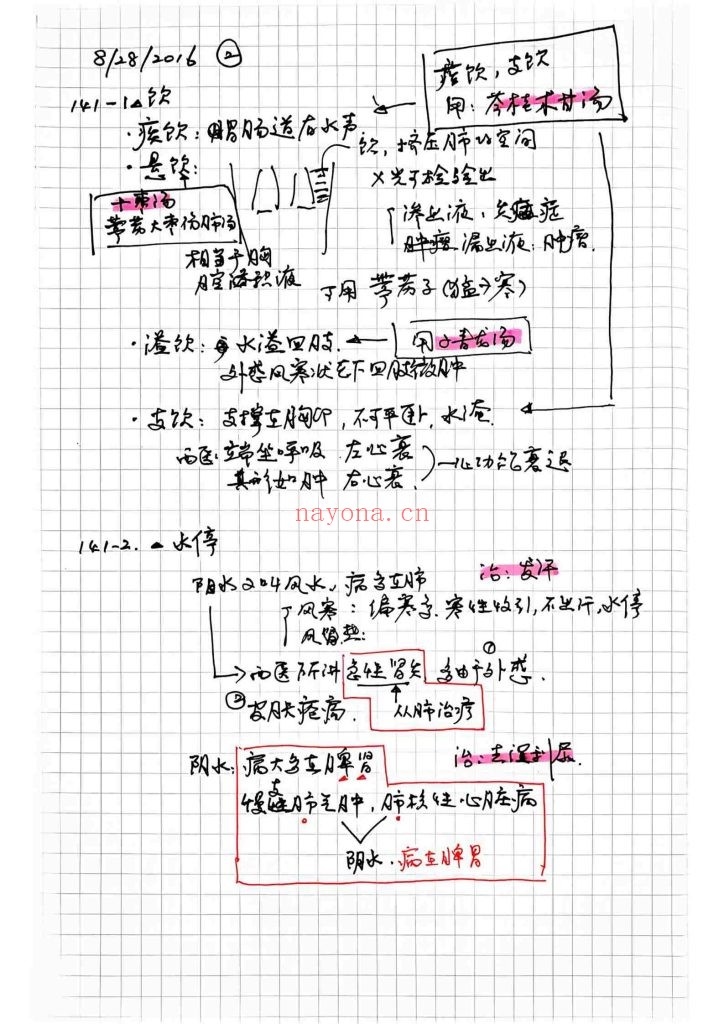 8/28/2016 ②
痰饮,支饮
用:苓桂术甘汤
141-1▲饮
·痰饮:胃肠道有水声
·悬饮:
饮,挤压肺的空间
X光可检验出
十枣汤
葶苈大枣汤
渗出液:炎症
漏出液:肿瘤.
相当于胸
腔积液
可用葶苈子(猛→寒)
·溢饮:水溢四肢.
用小青龙汤
外感风寒状态下四肢微肿
·支饮:支撑在胸中,不可平卧,水淹.
西医:端坐呼吸 左心衰
其形如肿 右心衰.
心功能衰退
nayona.cn
141-2.▲水停
阳水又叫风水,病多在肺
治:发汗
风寒:偏寒多.寒性收引,不出汗,水停
风热:
西医所讲急性肾炎多由于①外感.
②皮肤疮病.
从肺治疗
阴水:病大多在脾肾
治:去湿利尿.
慢支肺气肿,肺核性心脏病
阴水.病在脾肾